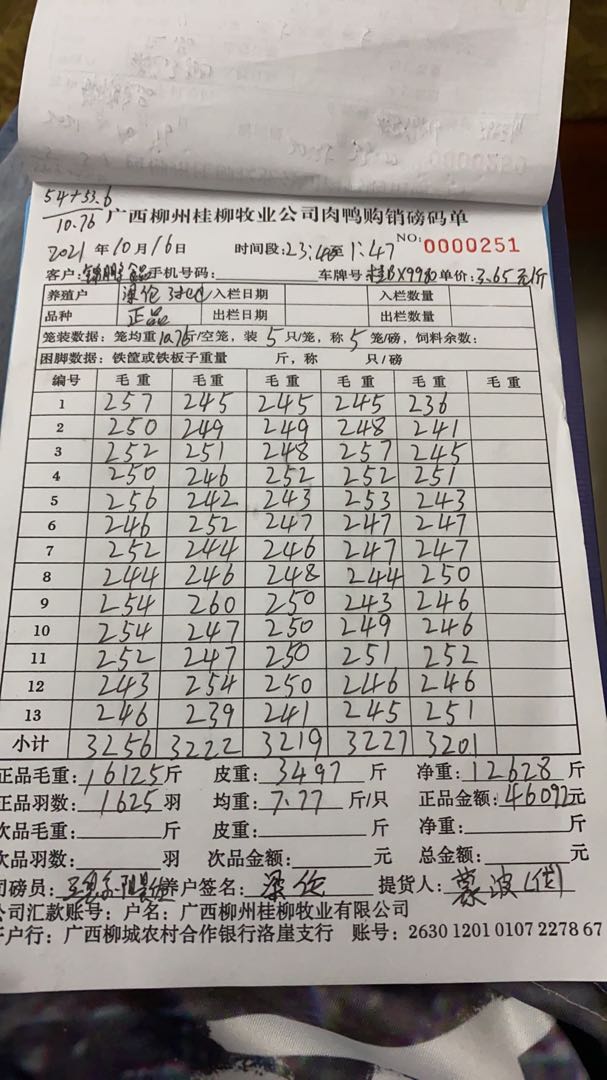 54+53.6
10.76
广西柳州桂柳牧业公司肉鸭购销磅码单
2021年10月16日 时间段:23:48至1:47 NO:0000251
客户: 手机号码: 车牌号:桂BX99 单价:3.65元/斤
养殖户 梁伦 入栏日期 入栏数量
品种 正品 出栏日期 出栏数量
笼装数据:笼均重10.76斤/空笼,装5只/笼,称5笼/磅,饲料余数:
困脚数据:铁筐或铁板子重量 斤,称 只/磅
编号 毛重 毛重 毛重 毛重 毛重 毛重
1 257 245 245 245 236
2 250 249 249 248 241
3 252 251 248 257 245
4 250 246 252 252 251
5 256 242 243 253 243
6 246 252 247 247 247
7 252 244 246 247 247
8 244 246 248 244 250
9 254 260 250 243 246
10 254 247 250 249 246
11 252 247 250 251 252
12 243 254 250 246 246
13 246 239 241 245 251
小计 3256 3222 3219 3227 3201
正品毛重:16125斤 皮重:3497斤 净重:12628斤
正品羽数:1625羽 均重:7.77斤/只 正品金额:46092元
次品毛重: 斤 皮重: 斤 净重: 斤
次品羽数: 羽 次品金额: 元 总金额: 元
司磅员: 养户签名:梁伦 提货人:蒙波(代)
公司汇款账号:户名:广西柳州桂柳牧业有限公司
开户行:广西柳城农村合作银行洛崖支行 账号:2630 1201 0107 2278 67